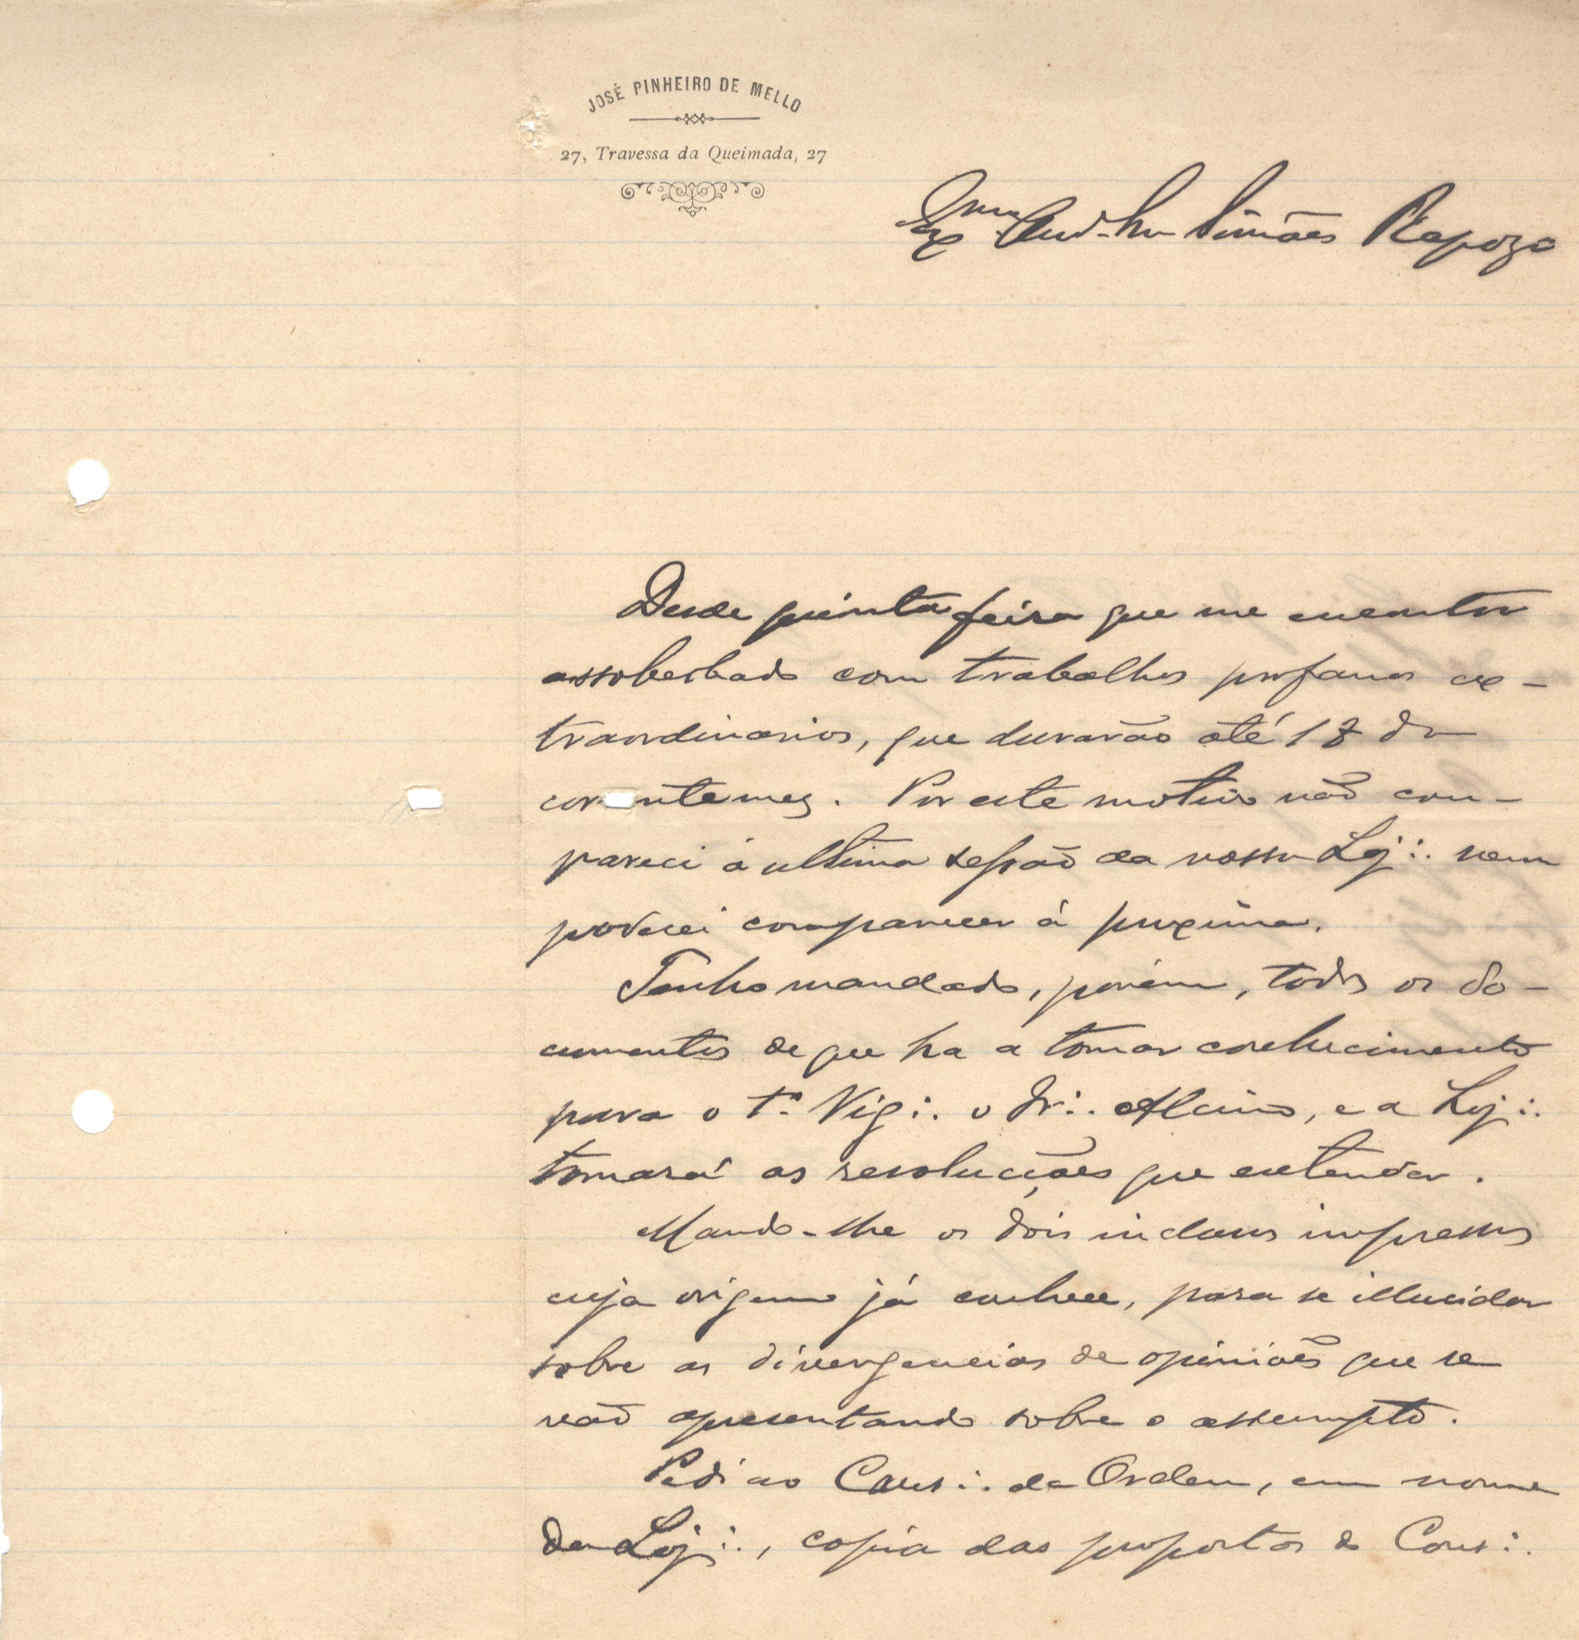 JOSÉ PINHEIRO DE MELLO
27, Travessa da Queimada, 27
Exmo Simões Rapozo
Desde quinta feira que me encontro
assoberbado com trabalhos profanos ex-
traordinarios, que durarão até 18 do
corrente mez. Por este motivo não com-
pareci á ultima sessão da nossa Loj∴ nem
poderei comparecer á proxima.
Tenho mandado, porém, todos os do-
cumentos de que ha a tomar conhecimento
para o 1º Vig∴ o Ir∴ Alcino, e a Loj∴
tomará as resoluções que entender.
Mando-lhe os dois inclusos impressos
cuja origem já conhece, para se illucidar
sobre as divergencias de opiniões que se
vão apresentando sobre o assumpto.
Pedi ao Cons∴ da Ordem, em nome
da Loj∴, copia das propostas do Cons∴